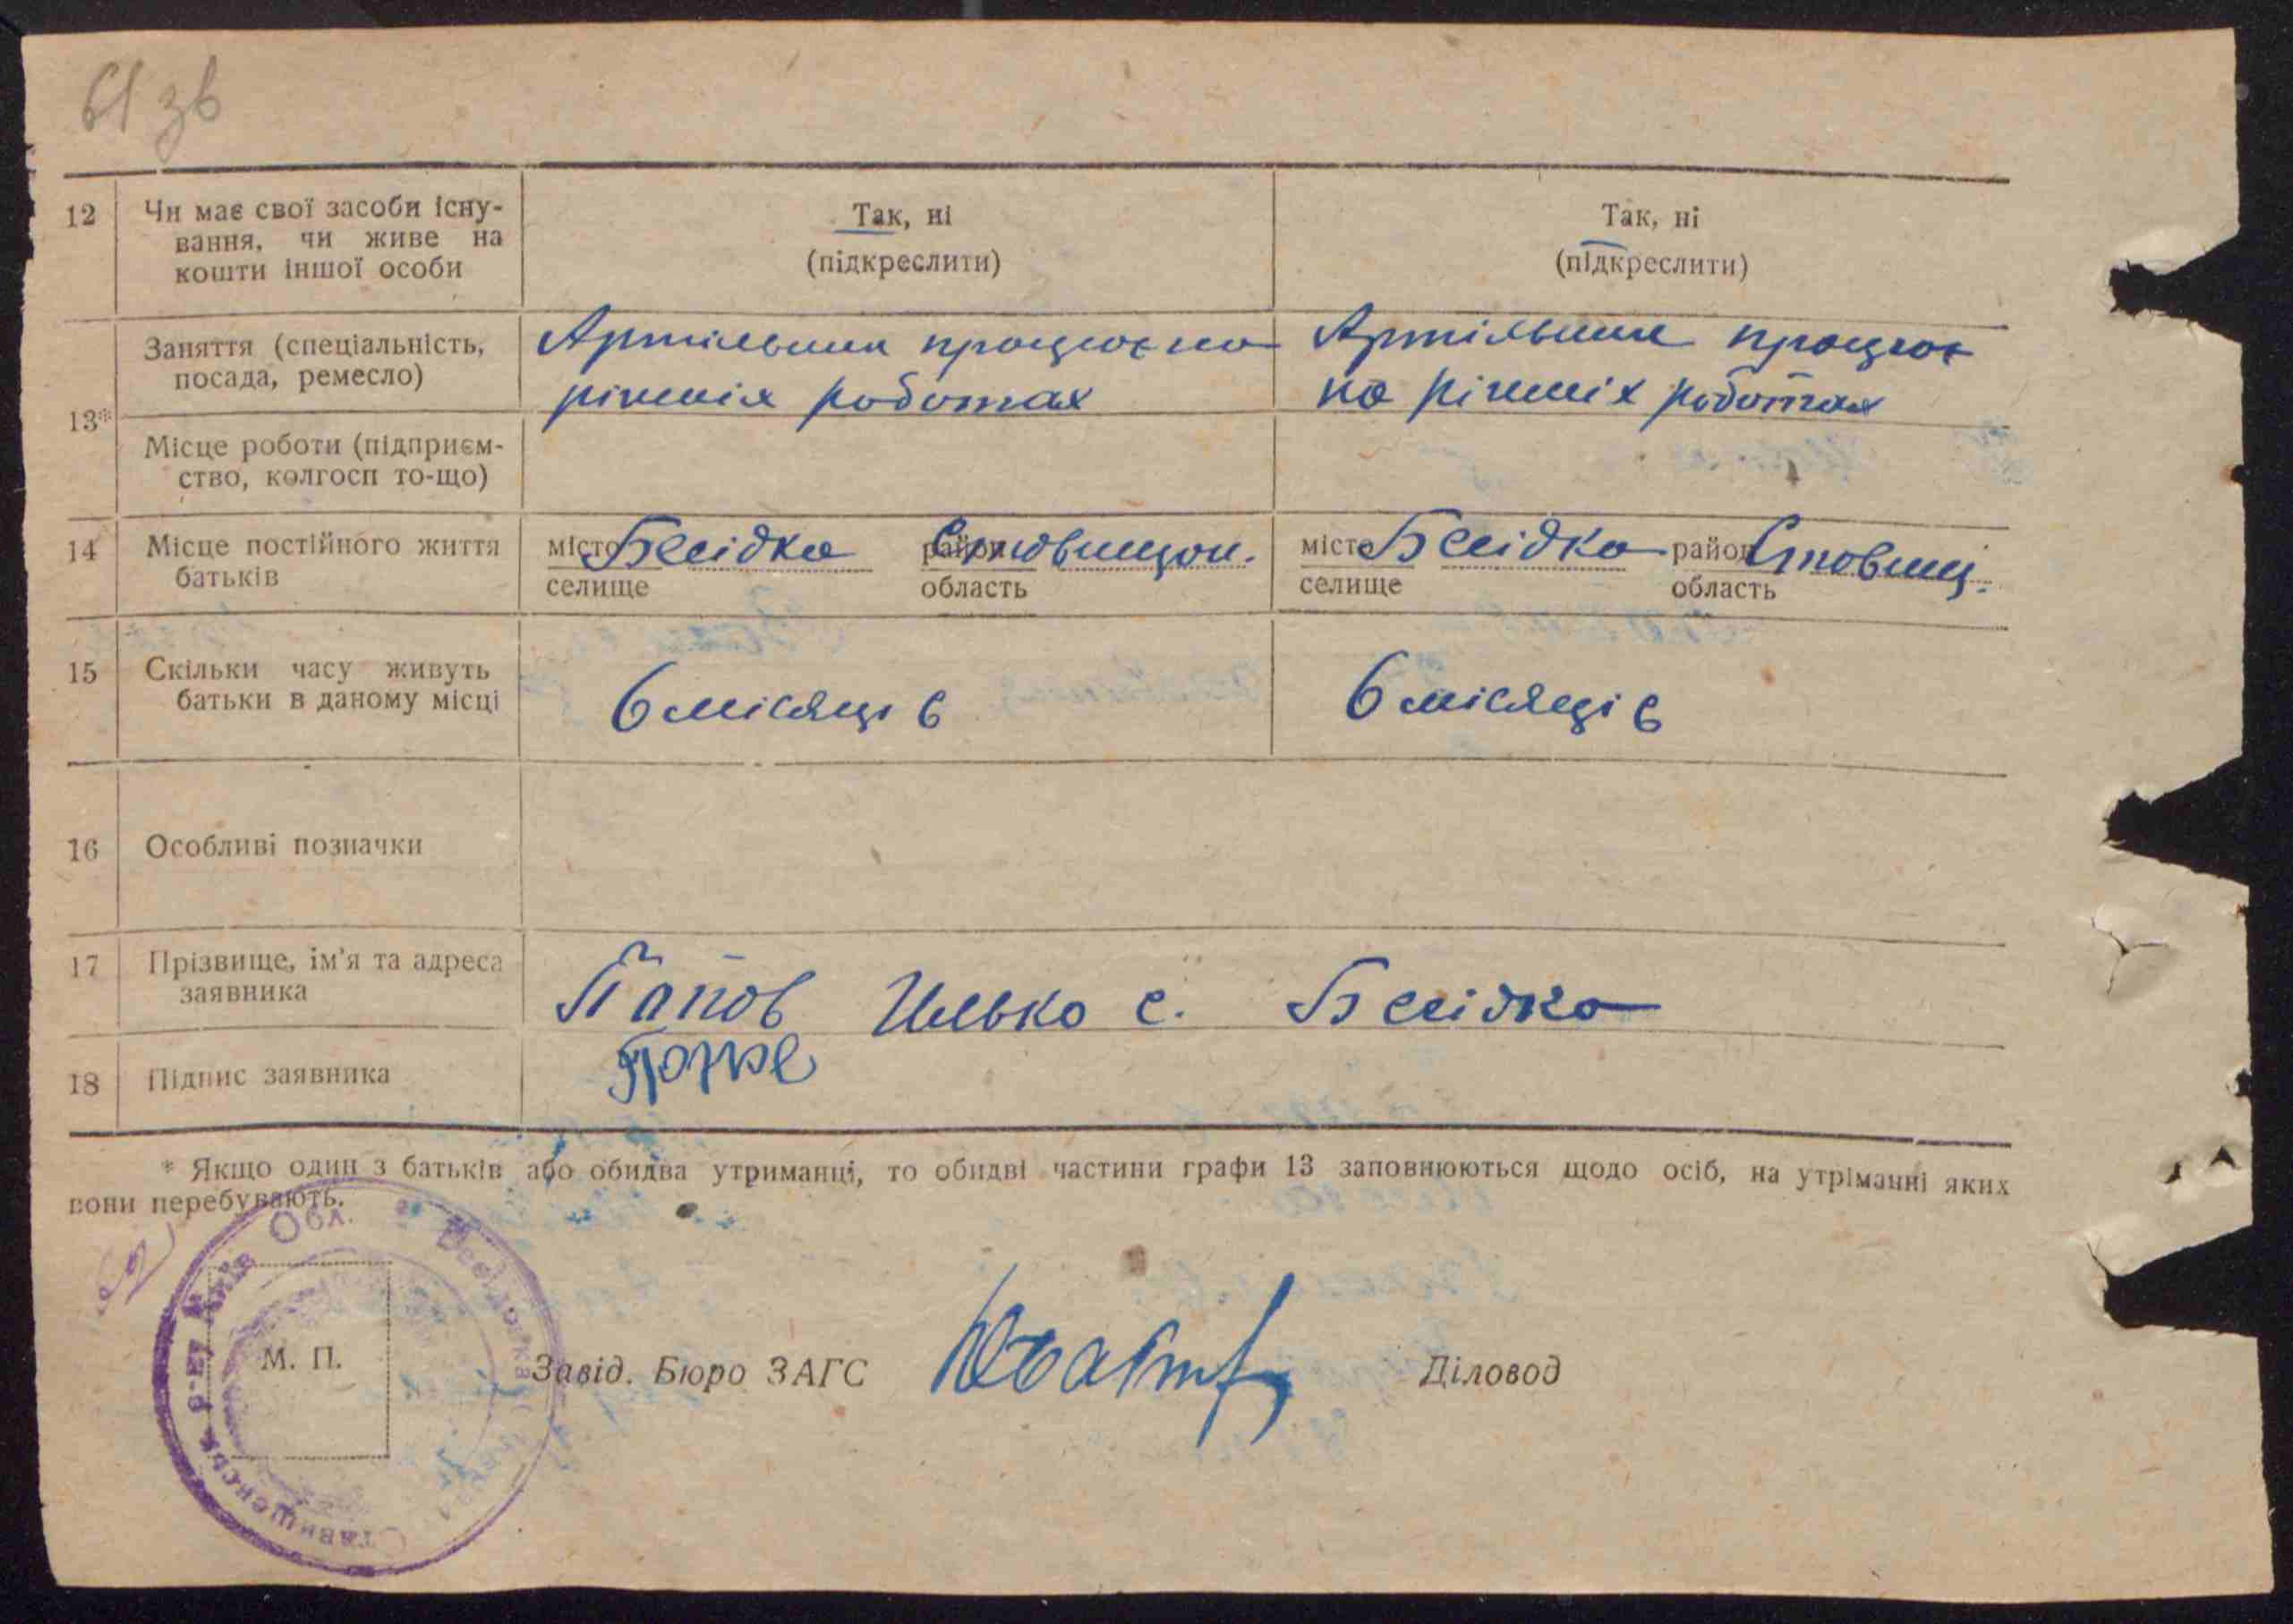 61 зв
12 Чи має свої засоби існу- Так, ні Так, ні
вання, чи живе на (підкреслити) (підкреслити)
кошти іншої особи
13* Заняття (спеціальність, Артільник працює на Артільник працює
посада, ремесло) різних роботах на різних роботах
Місце роботи (підприєм-
ство, колгосп то-що)
14 Місце постійного життя місто Бесідка район місто Бесідка район Ставищ.
батьків селище область селище область
15 Скільки часу живуть 6 місяців 6 місяців
батьки в даному місці
16 Особливі позначки
17 Прізвище, ім'я та адреса Папов Илько с. Бесідка
заявника
18 Підпис заявника
* Якщо один з батьків або обидва утриманці, то обидві частини графи 13 заповнюються щодо осіб, на утріманні яких
вони перебувають.
Ставищенськ. р-ну Київ Обл.
М. П.
Завід. Бюро ЗАГС Діловод